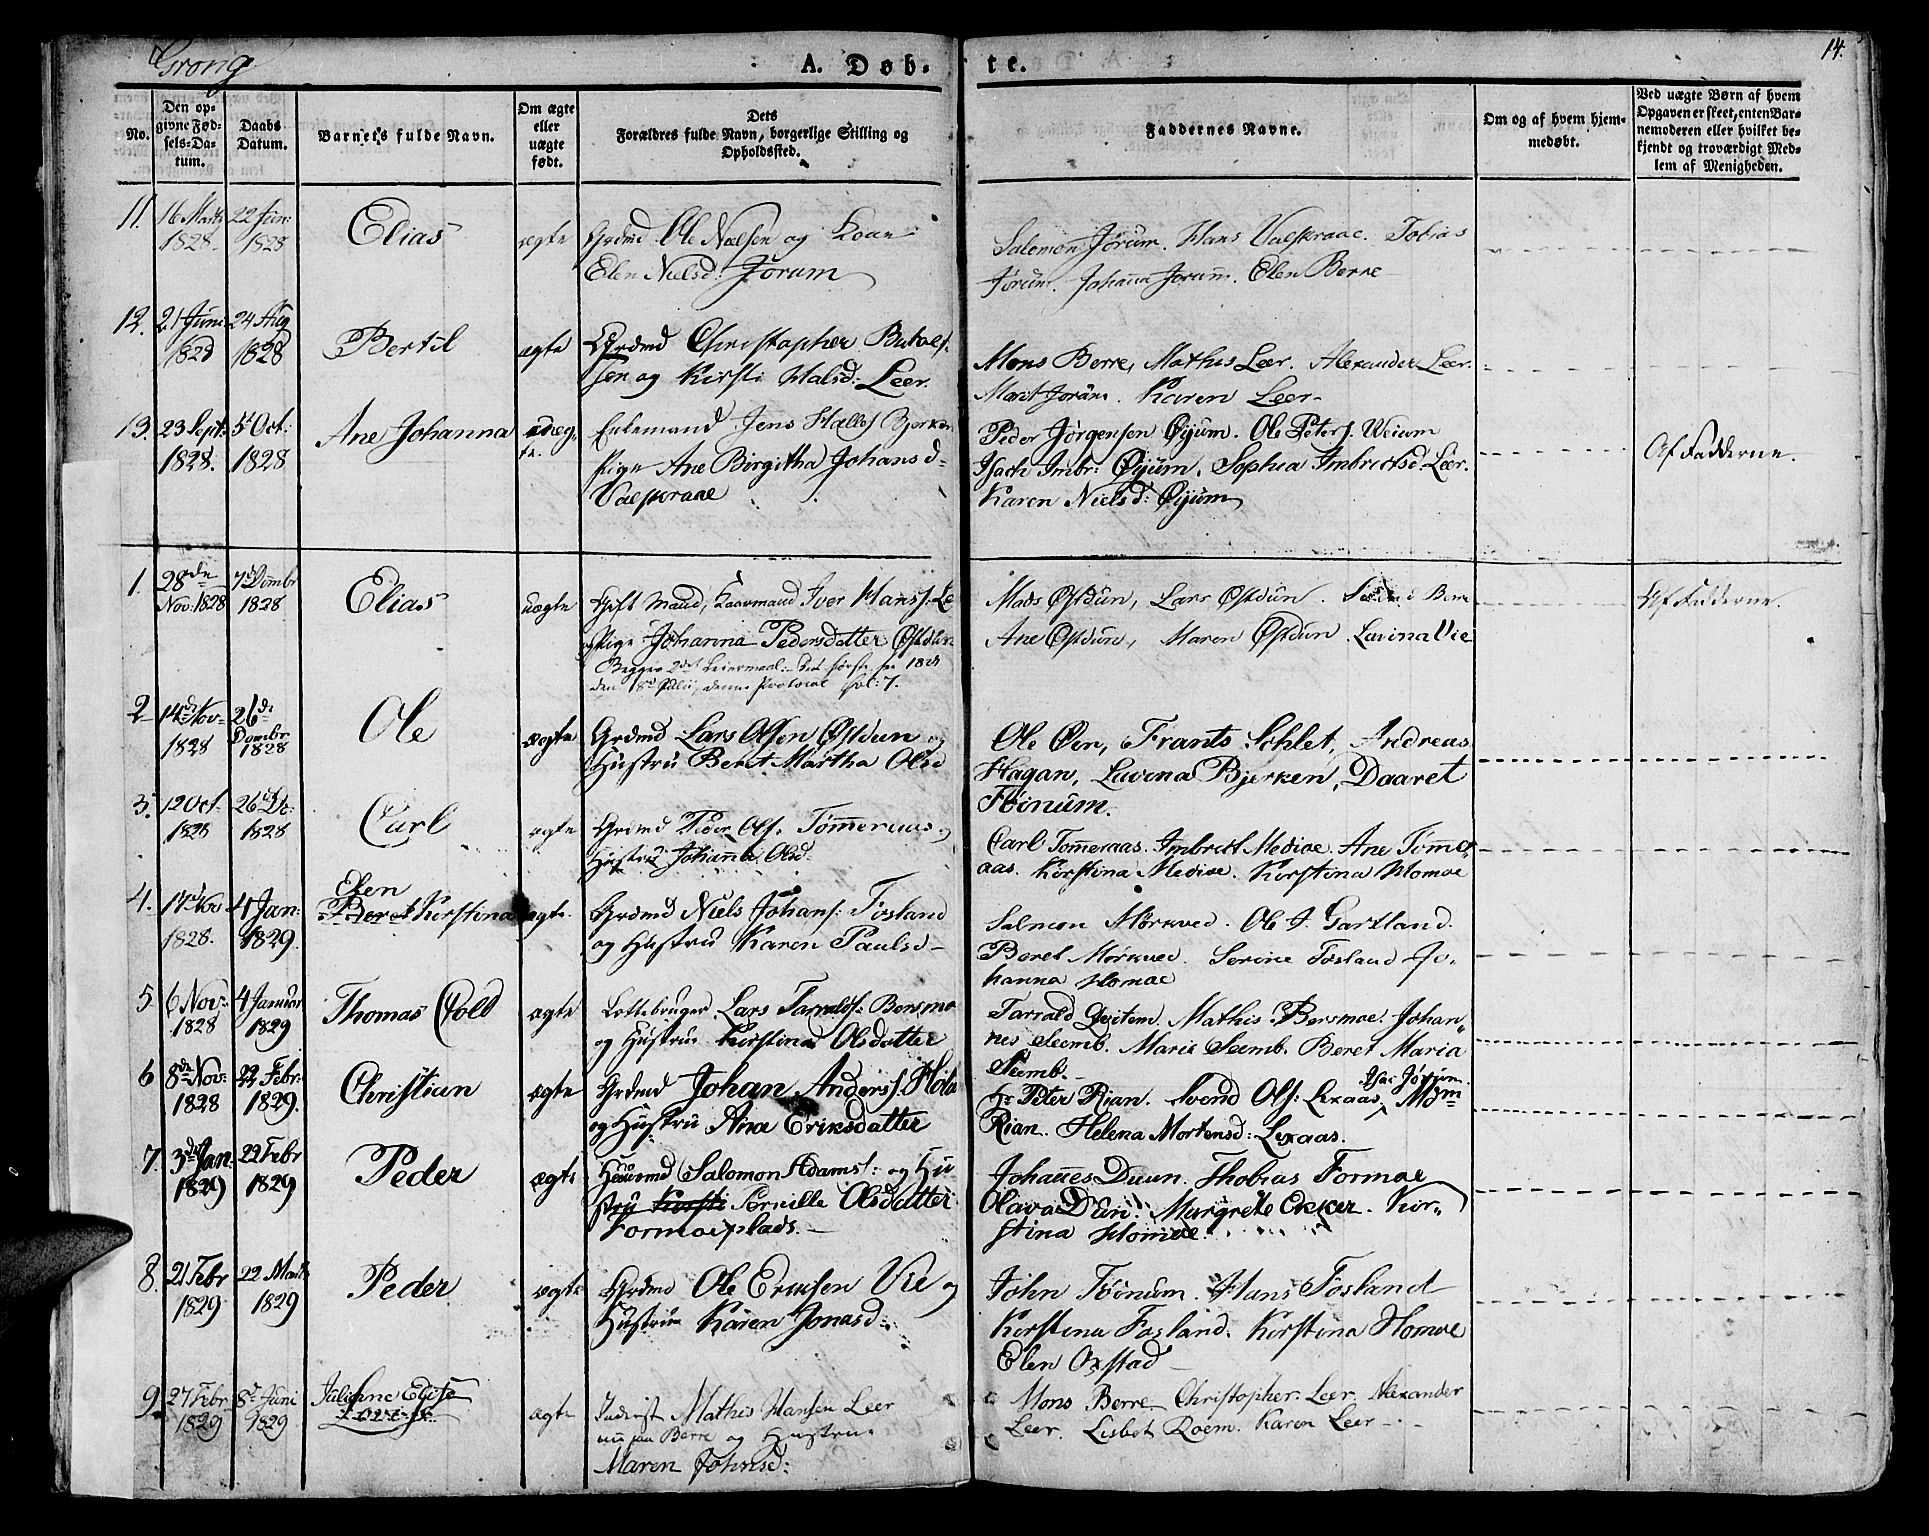 Grong
A. Døbte.
14.
No.
Den op-
givne Fød-
sels-Da-
tum.
Daabs
Datum.
Barnets fulde Navn.
Om ægte
eller
uægte
født.
Dets
Forældres fulde Navn, borgerlige Stilling og
Opholdssted.
Faddernes Navne.
Om og af hvem hjem-
medøbt.
Ved uægte Børn af hvem
Opgaven er skeet, enten Bar-
nemoderen eller hvilket be-
kjendt og troværdigt Med-
lem af Menigheden.
11. 16 Marts 22 Jun:
1828. 1828
Elias
ægte
Grdmd Ole Nielsen og Kone
Elen Nielsd: Jørum
Salomon Jørum. Hans Valskraae. Tobias
Jørum. Johanna Jorum. Elen Berre
12. 21 Juni 24 Aug
1828 1828
Bertil
ægte
Grdmd Christopher
sen og Kirsti Halsd: Leer.
Mons Berre, Mathis Leer. Alexander Leer.
Marit Jorum. Karen Leer
13. 23 Sept: 5 Oct:
1828. 1828
Ane Johanna
uæg-
te.
Enkemand Jens Halls Bjerken
Pige Ane Birgitha Johansd
Valskraae
Peder Jørgensen Øyum. Ole Peters. Weium
Isach Imbr: Øyum. Sophia Imbrictsd Leer.
Karen Nielsd: Øyum
Af Fadderne.
1. 28de 7d Dcmbr
Nov: 1828 1828
Elias
uægte
Gift Mand, Iver Hanss.
og Pige Johanna Pedersdatter Østdun
Begges 2det Leiermaal: Det første, see 182
den 18d Julii, denne Protocol fol: 7.
Mads Østdun, Lars Østdun. Berre
Ane Østdun, Maren Østdun. Lavina Vie
Af Fadderne.
2 14d Nov- 26de
1828 Dcmbr
1828
Ole
ægte
Grdmd Lars Olsen Østdun og
Hustru Beret Martha Olsd
Ole Øen, Frants Schlet, Andreas
Hagan, Lavina Bjerken, Daaret
Føinum.
3. 12 Oct. 26d Dc:
1828 1828
Carl
ægte
Grdmd Peder Ols. Tømmeraas og
Hustru Johanna Olsd.
Carl Tomeraas. Imbrict Mediae. Ane Tømer-
aas. Kirstina Mediae. Kirstina Homoe
4. 17d Nov 4 Jan:
1828. 1829.
Elen
Beret Kirstina
ægte
Grdmd Niels Johans: Fosland
og Hustru Karen Paulsd
Salmon Mørkved. Ole J. Gartland.
Beret Mørkved. Serine Fosland Jo-
hanna Homoe
5 6 Nov: 4 Januar
1828 1829
Thomas Cold
ægte
Lars Taraldss. Bersmo
og Hustru Kirstina Olsdatter
Tarrald Mathis Bersmoe. Johan-
nes Seemb. Marie Seemb. Beret Maria
Seemb.
6 8de Nov: 22 Febr:
1828 1829.
Christian
ægte
Grdmd Johan Anderss.
og Hustru Ane Eriksdatter
Isac Jørum.
Hr Peter Rian. Svend Ols: Lexaas.
Rian. Helena Mortensd: Lexaas.
7. 3de Jan: 22 Febr
1829 1829
Peder
ægte
Huusmd Salomon Adams: og Hu
stru Kirsti Pernille Olsdatter
Formoeplads.
Johannes Duun. Thobias Formoe
Olava Duun. Margrete Ekker. Kir-
stina Homoe.
8. 21 Febr 22 Marts
1829 1829
Peder
ægte
Grdmd Ole Eriksen Vie og
Hustru Karen Jonasd:
John Føinum. Hans Fosland
Kirstina Fosland. Kirstina Homoe
Elen Oxstad
9. 27 Febr 8d Juni
1829 1829
Juliane Elise
ægte
Mathis Hansen Leer
nu paa Berre og Hustru
Maren Johnsd:
Mons Berre. Christopher Leer. Alexander
Leer. Lisbet Roem. Karen Leer